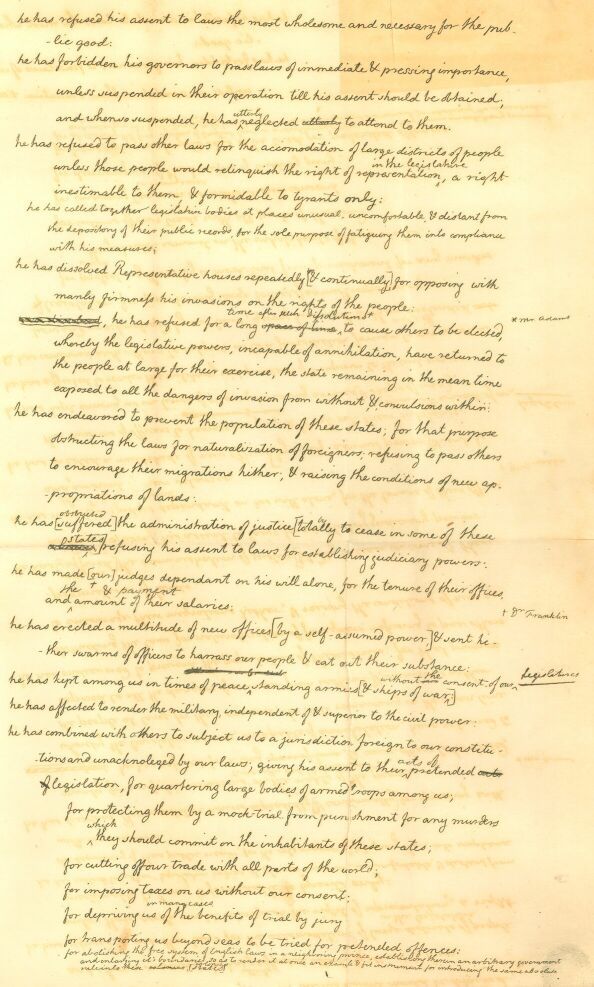 he has refused his assent to laws the most wholesome and necessary for the pub-
-lic good:
he has forbidden his governors to pass laws of immediate & pressing importance,
unless suspended in their operation till his assent should be obtained;
utterly
and when so suspended, he has neglected utterly to attend to them.
he has refused to pass other laws for the accomodation of large districts of people
in the legislature
unless those people would relinquish the right of representation, a right
inestimable to them, & formidable to tyrants only:
he has called together legislative bodies at places unusual, uncomfortable, & distant from
the depository of their public records, for the sole purpose of fatiguing them into compliance
with his measures;
he has dissolved Representative houses repeatedly [& continually] for opposing with
manly firmness his invasions on the rights of the people:
time after such dissolutions +
, he has refused for a long space of time, to cause others to be elected,
* Mr. Adams
whereby the legislative powers, incapable of annihilation, have returned to
the people at large for their exercise, the state remaining in the mean time
exposed to all the dangers of invasion from without & convulsions within:
he has endeavored to prevent the population of these states; for that purpose
obstructing the laws for naturalization of foreigners; refusing to pass others
to encourage their migrations hither; & raising the conditions of new ap-
-propriations of lands:
obstructed by
he has [suffered] the administration of justice [totally to cease in some of these
states] refusing his assent to laws for establishing judiciary powers:
he has made [our] judges dependant on his will alone, for the tenure of their offices,
the + & payment
and amount of their salaries:
+ Dr. Franklin
he has erected a multitude of new offices [by a self-assumed power] & sent hi-
-ther swarms of officers to harrass our people & eat out their substance:
without the
he has kept among us in times of peace standing armies [& ships of war;] consent of our legislatures
he has affected to render the military, independent of & superior to the civil power:
he has combined with others to subject us to a jurisdiction foreign to our constitu-
acts of
-tions and unacknoleged by our laws; giving his assent to their pretended acts
of legislation, for quartering large bodies of armed troops among us;
for protecting them by a mock-trial from punishment for any murders
which
they should commit on the inhabitants of these states;
for cutting off our trade with all parts of the world;
for imposing taxes on us without our consent;
in many cases
for depriving us of the benefits of trial by jury
for transporting us beyond seas to be tried for pretended offences:
for abolishing the free system of English laws in a neighboring province, establishing therein an arbitrary government
and enlarging it's boundaries so as to render it at once an example & fit instrument for introducing the same absolute
rule into these colonies [states]